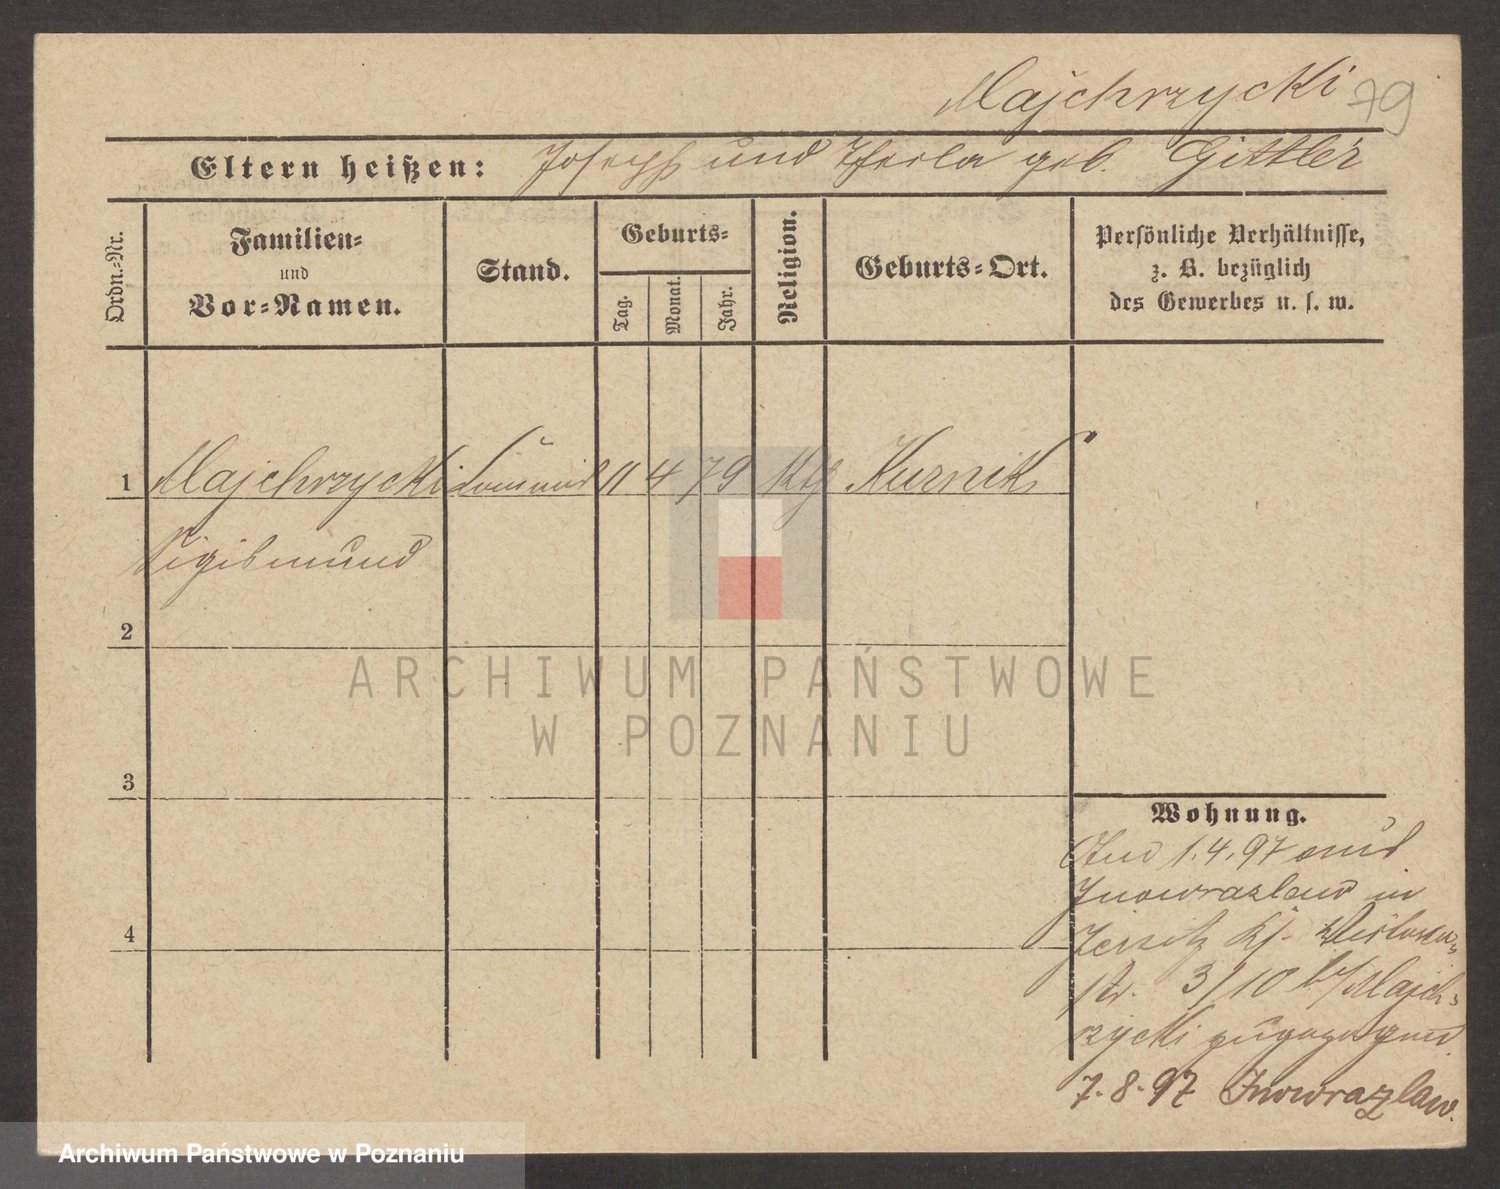 Majchrzycki 79
Eltern heißen: Joseph und Thecla geb. Gittler
Ordn.-Nr.
Familien-
und
Vor-Namen.
Stand.
Geburts-
Tag.
Monat.
Jahr.
Religion.
Geburts-Ort.
Persönliche Verhältnisse,
z. B. bezüglich
des Gewerbes u. s. w.
1 Majchrzycki 11 4 79 Kth Kurnik
Sigismund
2
ARCHIWUM PAŃSTWOWE
W POZNANIU
3
Wohnung.
1.4.97 aus
Inowrazlaw in
4
Jersitz
str. 3/10 b/Majch-
rzycki zugezogen.
7.8.97 Inowrazlaw.
Archiwum Państwowe w Poznaniu